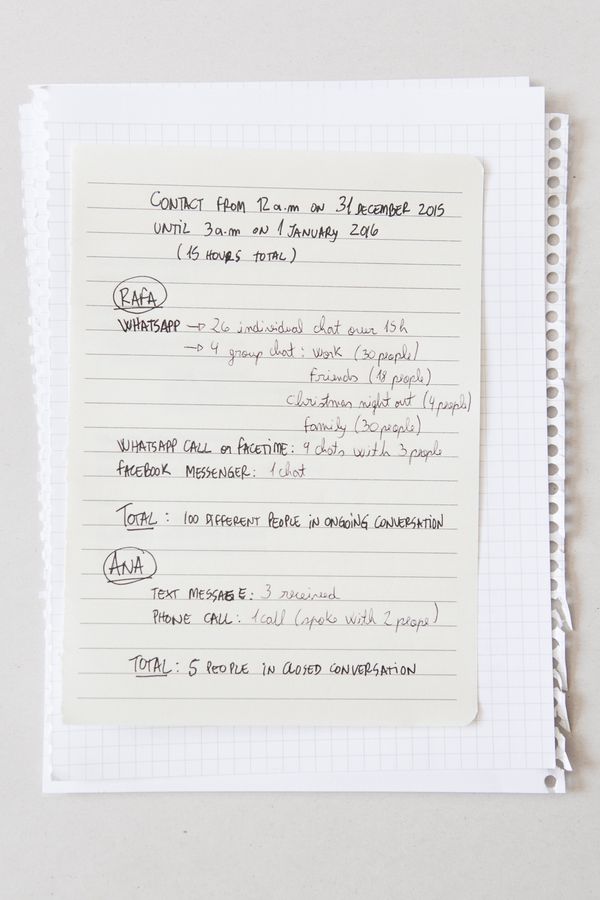 CONTACT FROM 12 a.m ON 31 DECEMBER 2015
UNTIL 3 a.m ON 1 JANUARY 2016
(15 HOURS TOTAL)
RAFA
WHATSAPP → 26 individual chat over 15h
→ 4 group chat: work (30 people)
friends (18 people)
christmas night out (4 people)
family (30 people)
WHATSAPP CALL or FACETIME: 9 chats with 3 people
FACEBOOK MESSENGER: 1 chat
TOTAL: 100 DIFFERENT PEOPLE IN ONGOING CONVERSATION
ANA
TEXT MESSAGE: 3 received
PHONE CALL: 1 call (spoke with 2 peope)
TOTAL: 5 PEOPLE IN CLOSED CONVERSATION